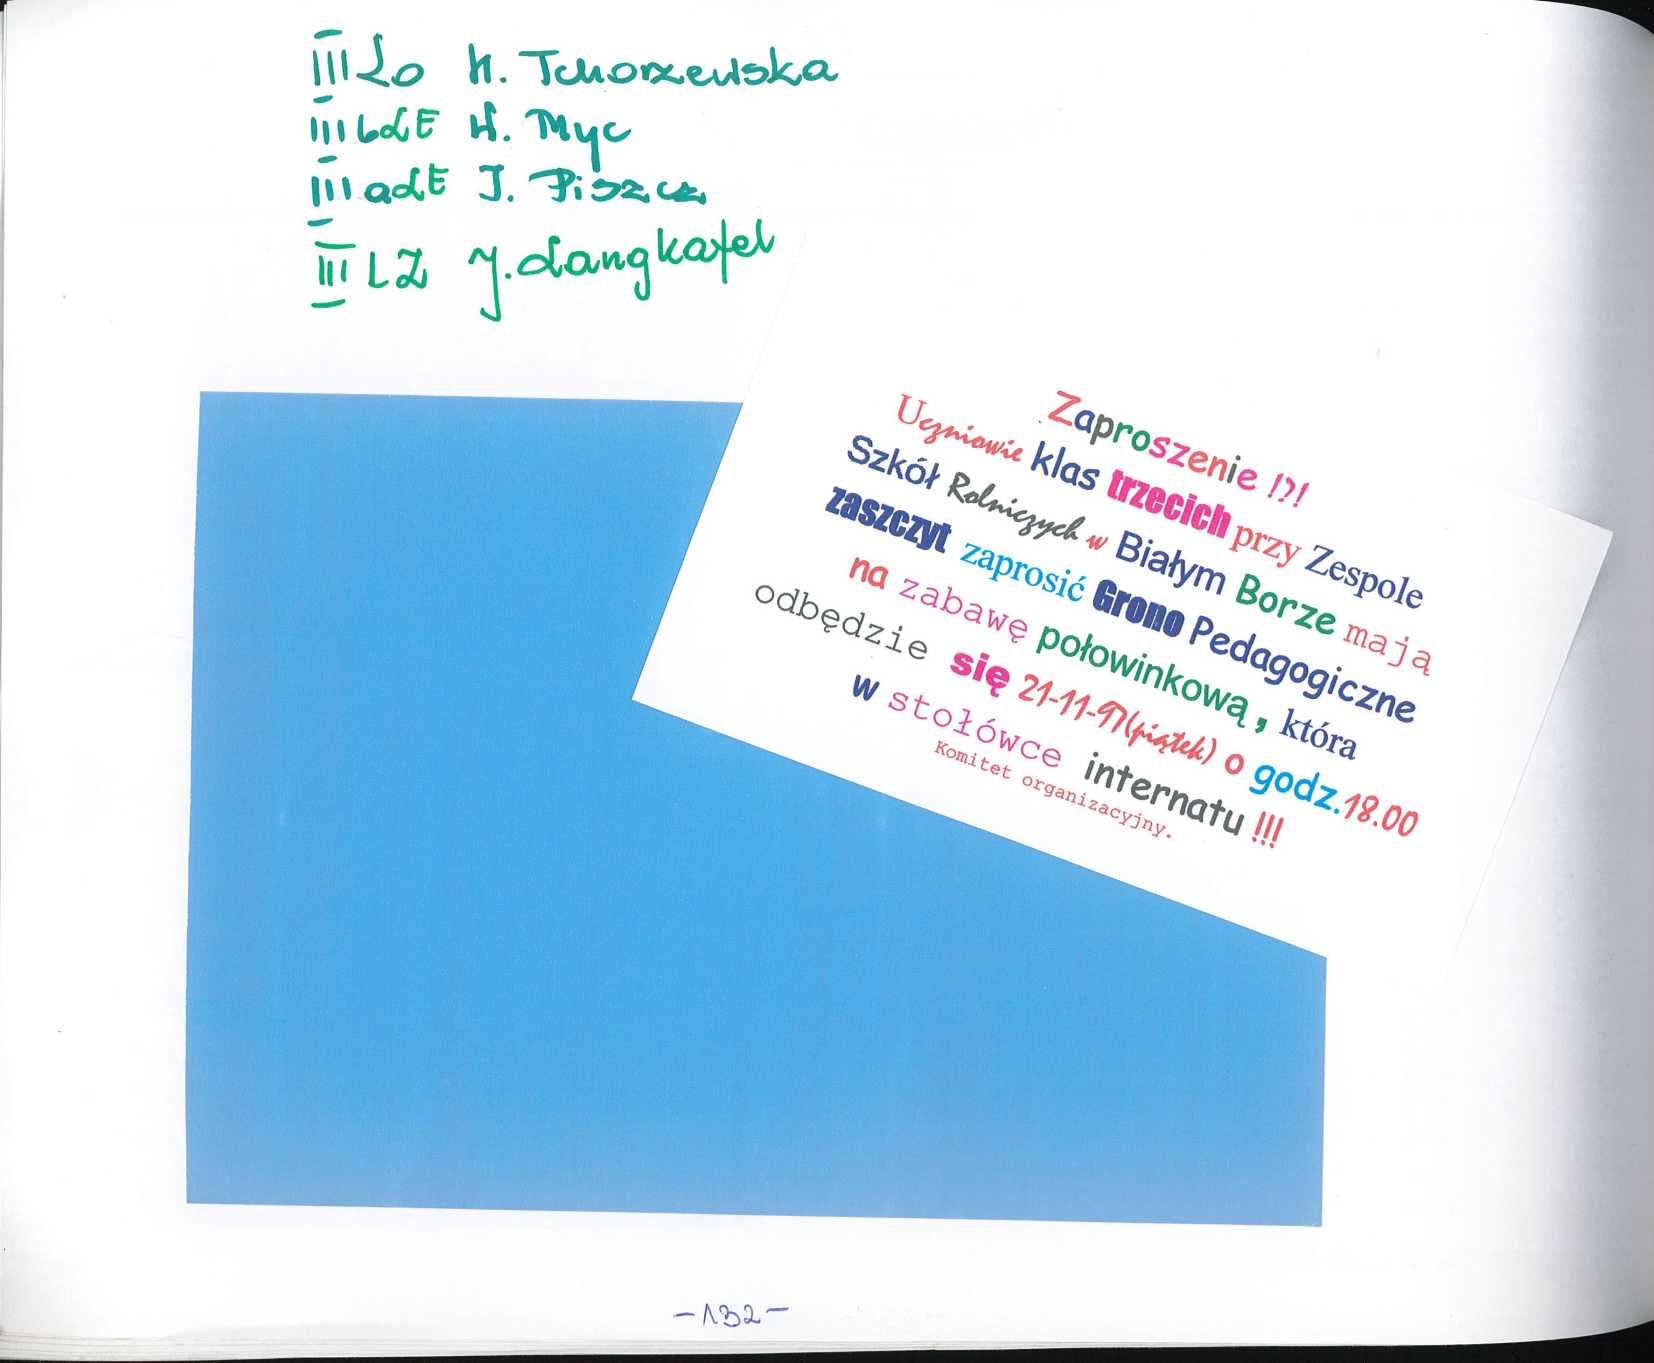 III Lo H. Tchorzewska
III b LE H. Myc
III a LE J. Piszcz
III LZ J. Langkafel
Zaproszenie !?!
Uczniowie klas trzecich przy Zespole
Szkół Rolniczych w Białym Borze mają
zaszczyt zaprosić Grono Pedagogiczne
na zabawę połowinkową, która
odbędzie się 21-11-97(piątek) o godz.18.00
w stołówce internatu !!!
Komitet organizacyjny.
-132-